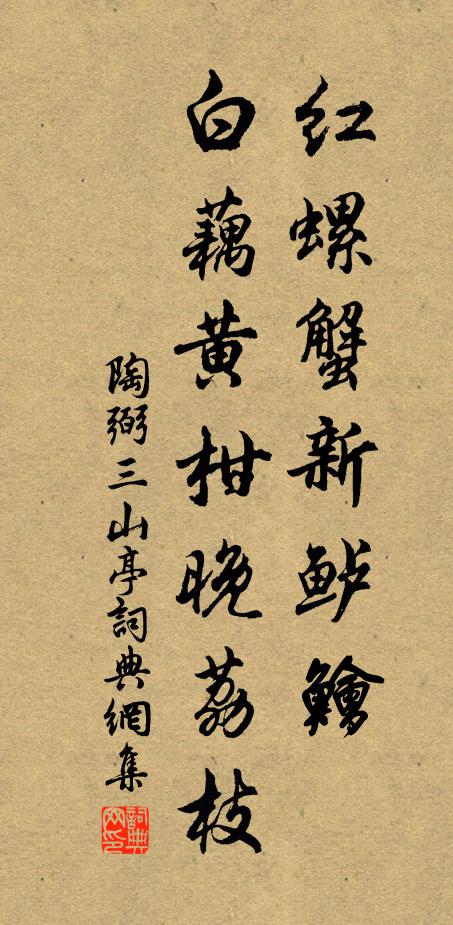 红螺蟹新鲈鱠
白藕黄柑晚荔枝
陶弼三山亭詞典網集
詞典网印